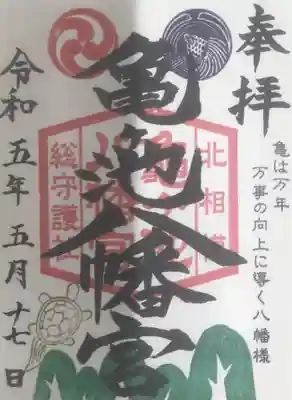 奉拝
亀は万年
万事の向上に導く八幡様
北相模
亀ヶ池
八幡宮
総守護社
亀池八幡宮
令和五年五月十七日